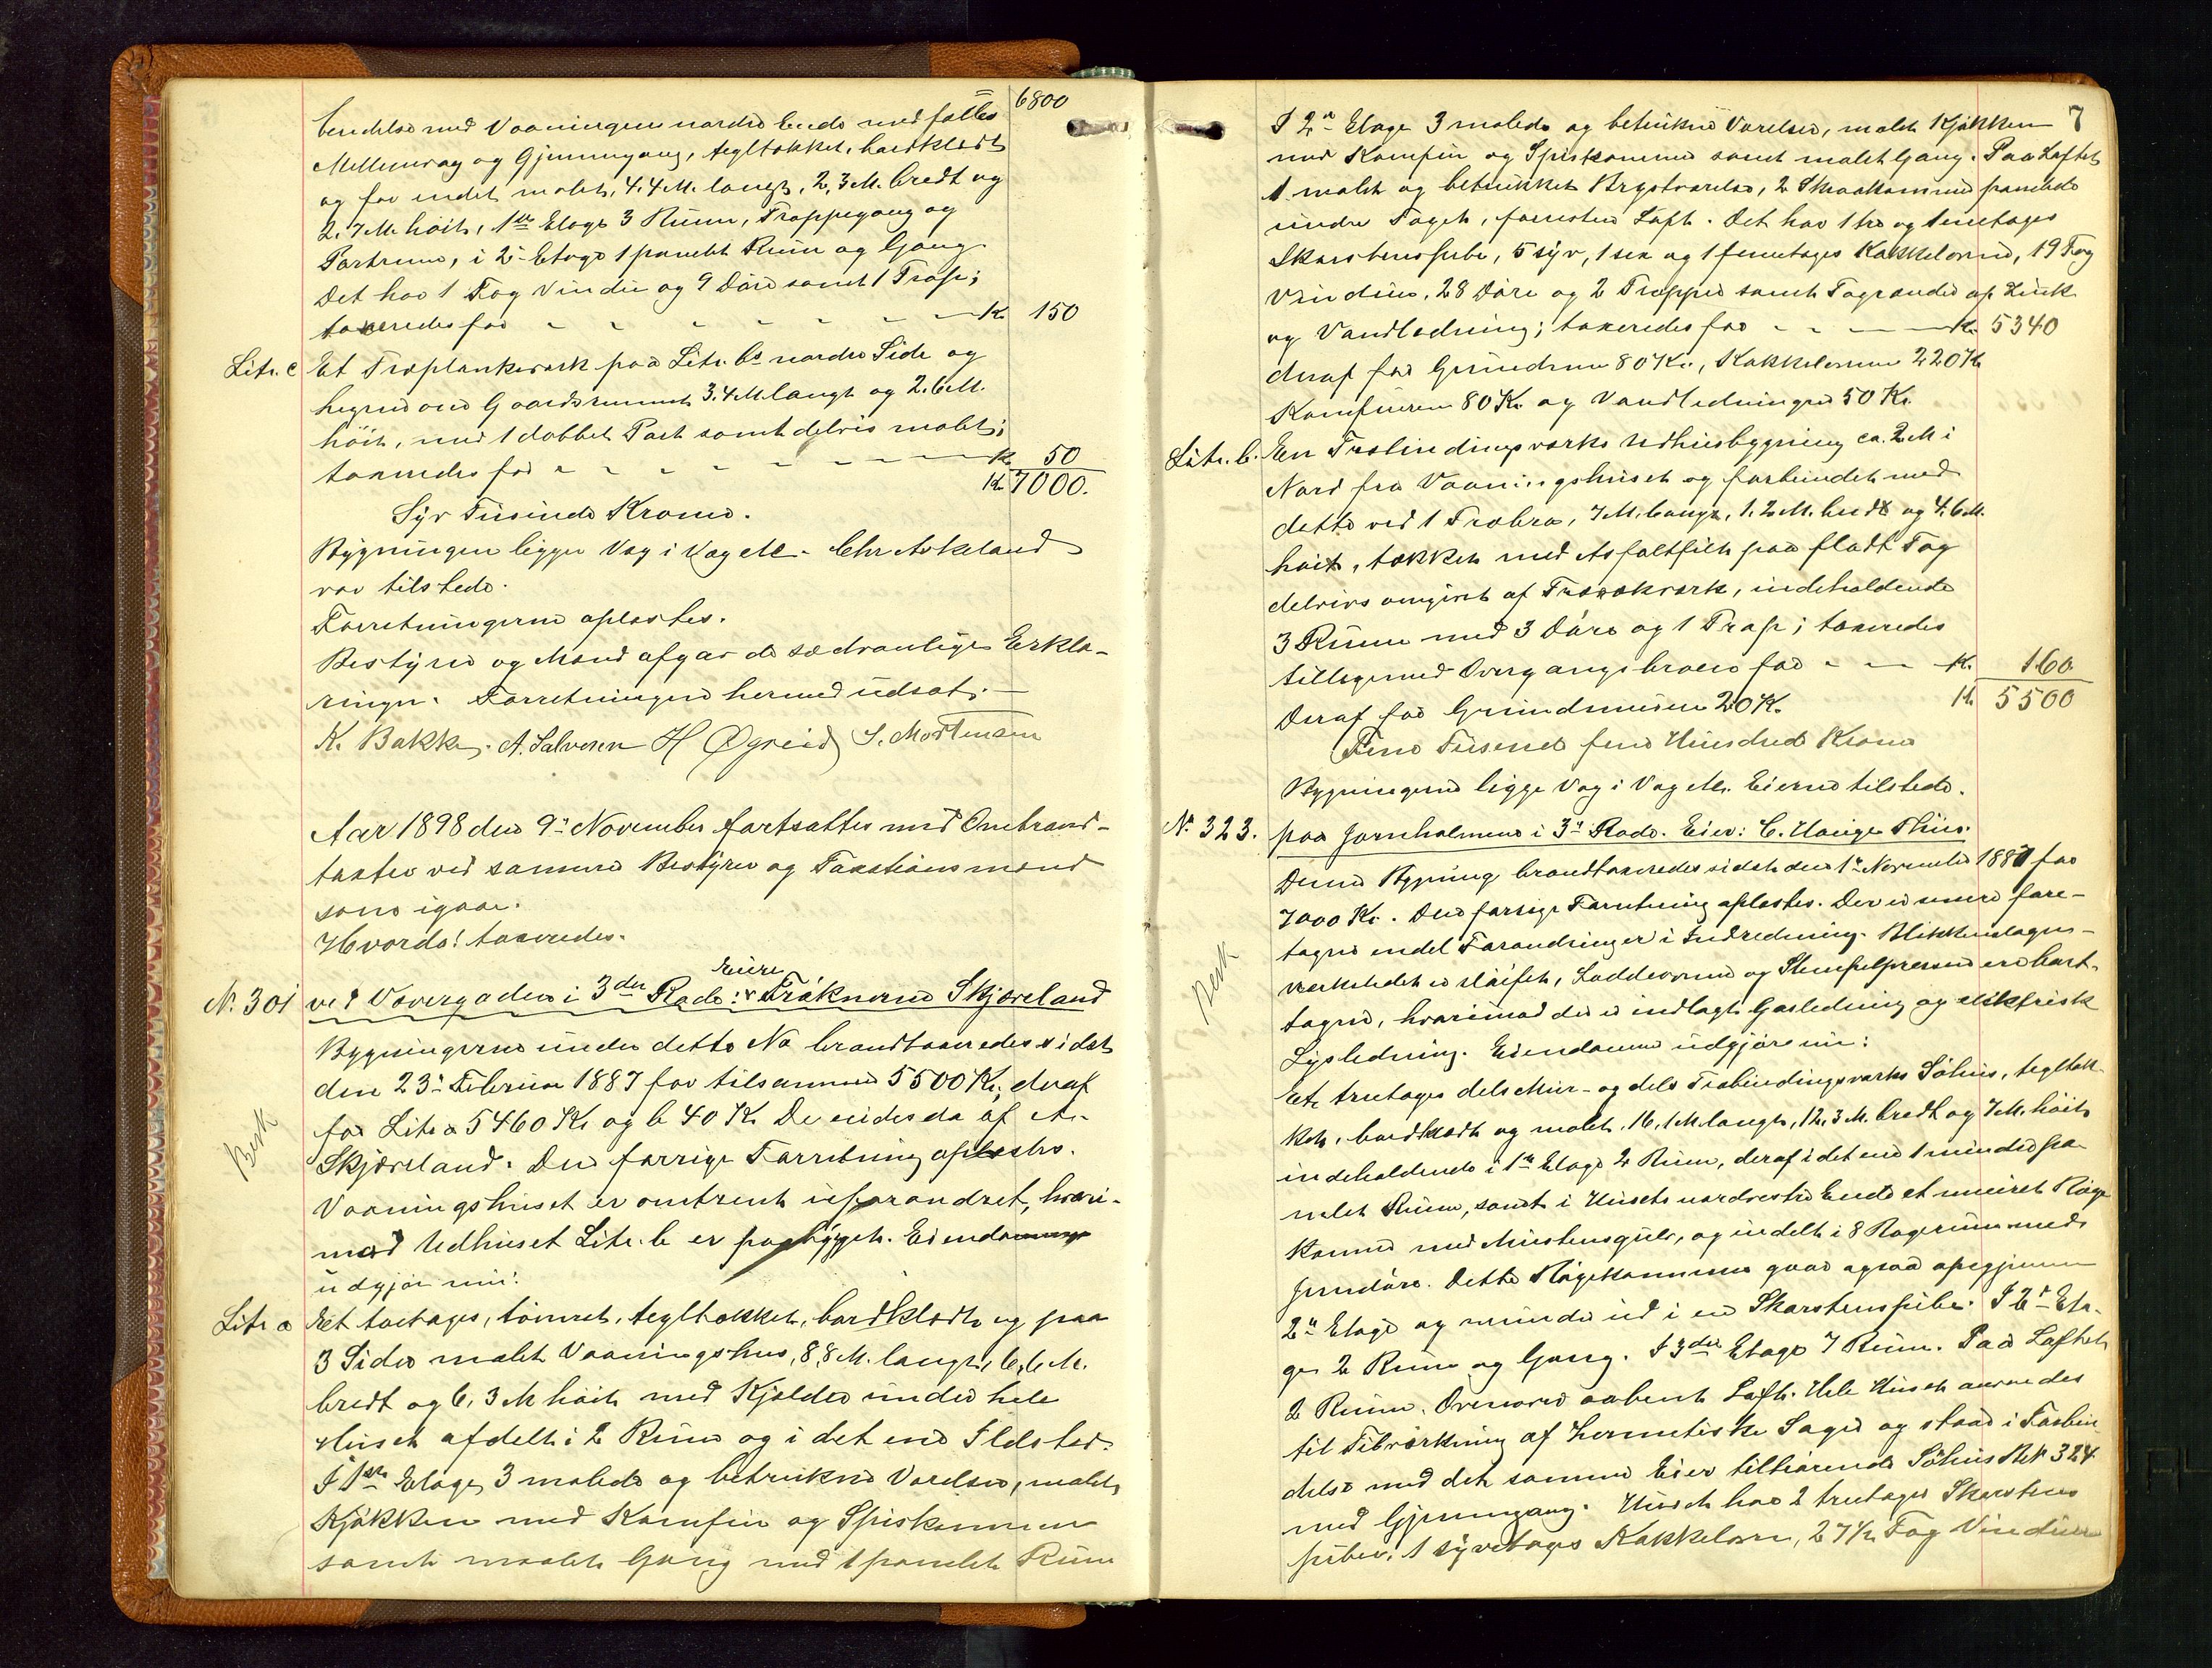 6800
bindelse med Vaaningens nordre Ende med fælles
Mellemvæg og Gjennemgang, tegltækket, bordklædt
og for endel malet, 4,4 M. langt, 2,3 M. bredt og
2,7 M. høit, 1ste Etage 3 Rum, Trappegang og
Portrum, i 2den Etage 1 panelet Rum og Gang.
Det har 1 Fag Vindu og 9 Døre samt 1 Trap;
taxeredes for - - - - - - - Kr. 150
Litr. c Et Træplankeværk paa Litr. bs nordre Side og
Gaardsrummet 3,4 M. langt og 2,6 M.
høit, med 1 dobbet Port samt delvis malet;
taxeredes for - - - - - - - Kr. 50
Kr. 7000.
Syv Tusinde Kroner.
Bygningen ligger Væg i Væg etc. Chr Askeland
var tilstede.
Forretningerne oplæstes.
Bestyrer og Mænd afgav de sædvanlige Erklæ-
ringer. Forretningen hermed udsat. —
K. Bakke. A. Salvesen H Øgreid S. Mortensen
Aar 1898 den 9de November fortsattes med Ombrand-
taxter ved samme Bestyrer og Taxtionsmænd
som igaar.
Hvorda! taxeredes.
Nr. 301 ved Vovergaden i 3die Rode: Eiere Frøknerne Skjæveland
Bygningerne under dette No brandtaxeredes sidst
den 23de Februar 1887 for tilsammen 5500 Kr., deraf
for Litr a 5460 Kr og b 40 Kr De eiedes da af A.
Skjæveland. Den forrige Forretning oplæstes.
Vaaningshuset er omtrent uforandret, hvori-
Besk
mod Udhuset Litr. b er paabygget. Eiendommen
udgjør nu:
Litr a Et toetages, tømret, tegltækket, bordklædt og paa
3 Sider malet Vaaningshus, 8,8 M. langt, 6,6 M.
bredt og 6,3 M høit med Kjælder under hele
Huset afdelt i 2 Rum og i det ene Ildsted.
I 1ste Etage, 3 malede og betrukne Værelser, malet
Kjøkken med Komfur og Spiskammer
samt malet Gang med 1 panelet Rum
7
I 2den Etage 3 malede og betrukne Værelser, malet Kjøkken
med Komfur og Spiskammer samt malet Gang. Paa Loftet
1 malet og betrukket Brystværelse, 2 Skraakammer panelede
under Taget, forresten Loft. Det har 1 tre og 1 enetages
Skorstenspibe, 5 syv, 1 sex og 1 femetages Kakkelovne, 19 Fag
Vinduer, 28 Døre og 2 Trapper samt Tagrender af Zink
og Vandledning; taxeredes for - - - Kr. 5340
deraf for Grundmuren 80 Kr., Kakkelovnene 220 Kr
Komfurene 80 Kr og Vandledningen 50 Kr.
Litr. b. En Træbindingsværks Udhusbygning ca. 2 M i
Nord fra Vaaningshuset og forbundet med
dette ved 1 Træbro, 7 M. langt, 1,2 M. bredt og 4,6 M.
høit, tækket med Asfaltfilt paa fladt Tag
delvis omgivet af Trærækværk, indeholdende
3 Rum med 3 Døre og 1 Trap; taxeredes
tilligemed Overgangsbroen for - - - Kr. 160
Deraf for Grundmuren 20 Kr. Kr. 5500
Fem Tusend fem Hundred Kroner
Bygningerne ligge Væg i Væg etc. Eierne tilstede.
Nr. 323. paa Jornholmene i 3die Rode. Eier: C. Houge Thiis.
Denne Bygning brandtaxeredes sidst den 1ste November 1887 for
7000 Kr. Den forrige Forretning oplæstes. Der er senere fore-
taget endel Forandringer i Indredning. Blikkenslager-
Besk
værkstedet er sløifet, Loddeovne og Stempelpressen ere bort-
tagne, hvorimod der er indlagt Gasledning og elektrisk
Lysledning. Eiendommen udgjør nu:
Et tretages dels Mur- og dels Træbindingsværks Søhus, tegltæk-
ket, bordklædt og malet, 16,1 M. langt, 12,3 M. bredt og 7 M. høit
indeholdende i 1ste Etage 2 Rum, deraf i det ene 1 mindre pa-
nelet Rum, samt i Husets nordvestre Ende et muret Røge-
kammer med Murstensgulv, og inddelt i 8 Røgerum med
Jerndøre. Dette Røgekammer gaar ogsaa op gjennem
2den Etage og munder ud i en Skorstenspibe. I 2den Eta-
ge 2 Rum og Gang. I 3die Etage 7 Rum. Paa Loftet
2 Rum. Ovenover aabent Loft. Hele Huset anvendes
til Tilvirkning af hermetiske Sager og staar i Forbin-
delse med det samme Eier tilhørende Søhus No 324
med Gjennemgang. Huset har 2 tretages Skorstens-
piber, 1 syvetages Kakkelovn, 27½ Fag Vinduer